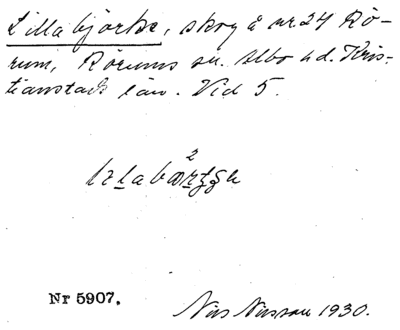 Lilla björke, skog å nr 24 Rö-
rum, Rörums sn. Albo hd. Kris-
tianstads län. Vid 5.
Nr 5907.
Nils Nilsson 1930.